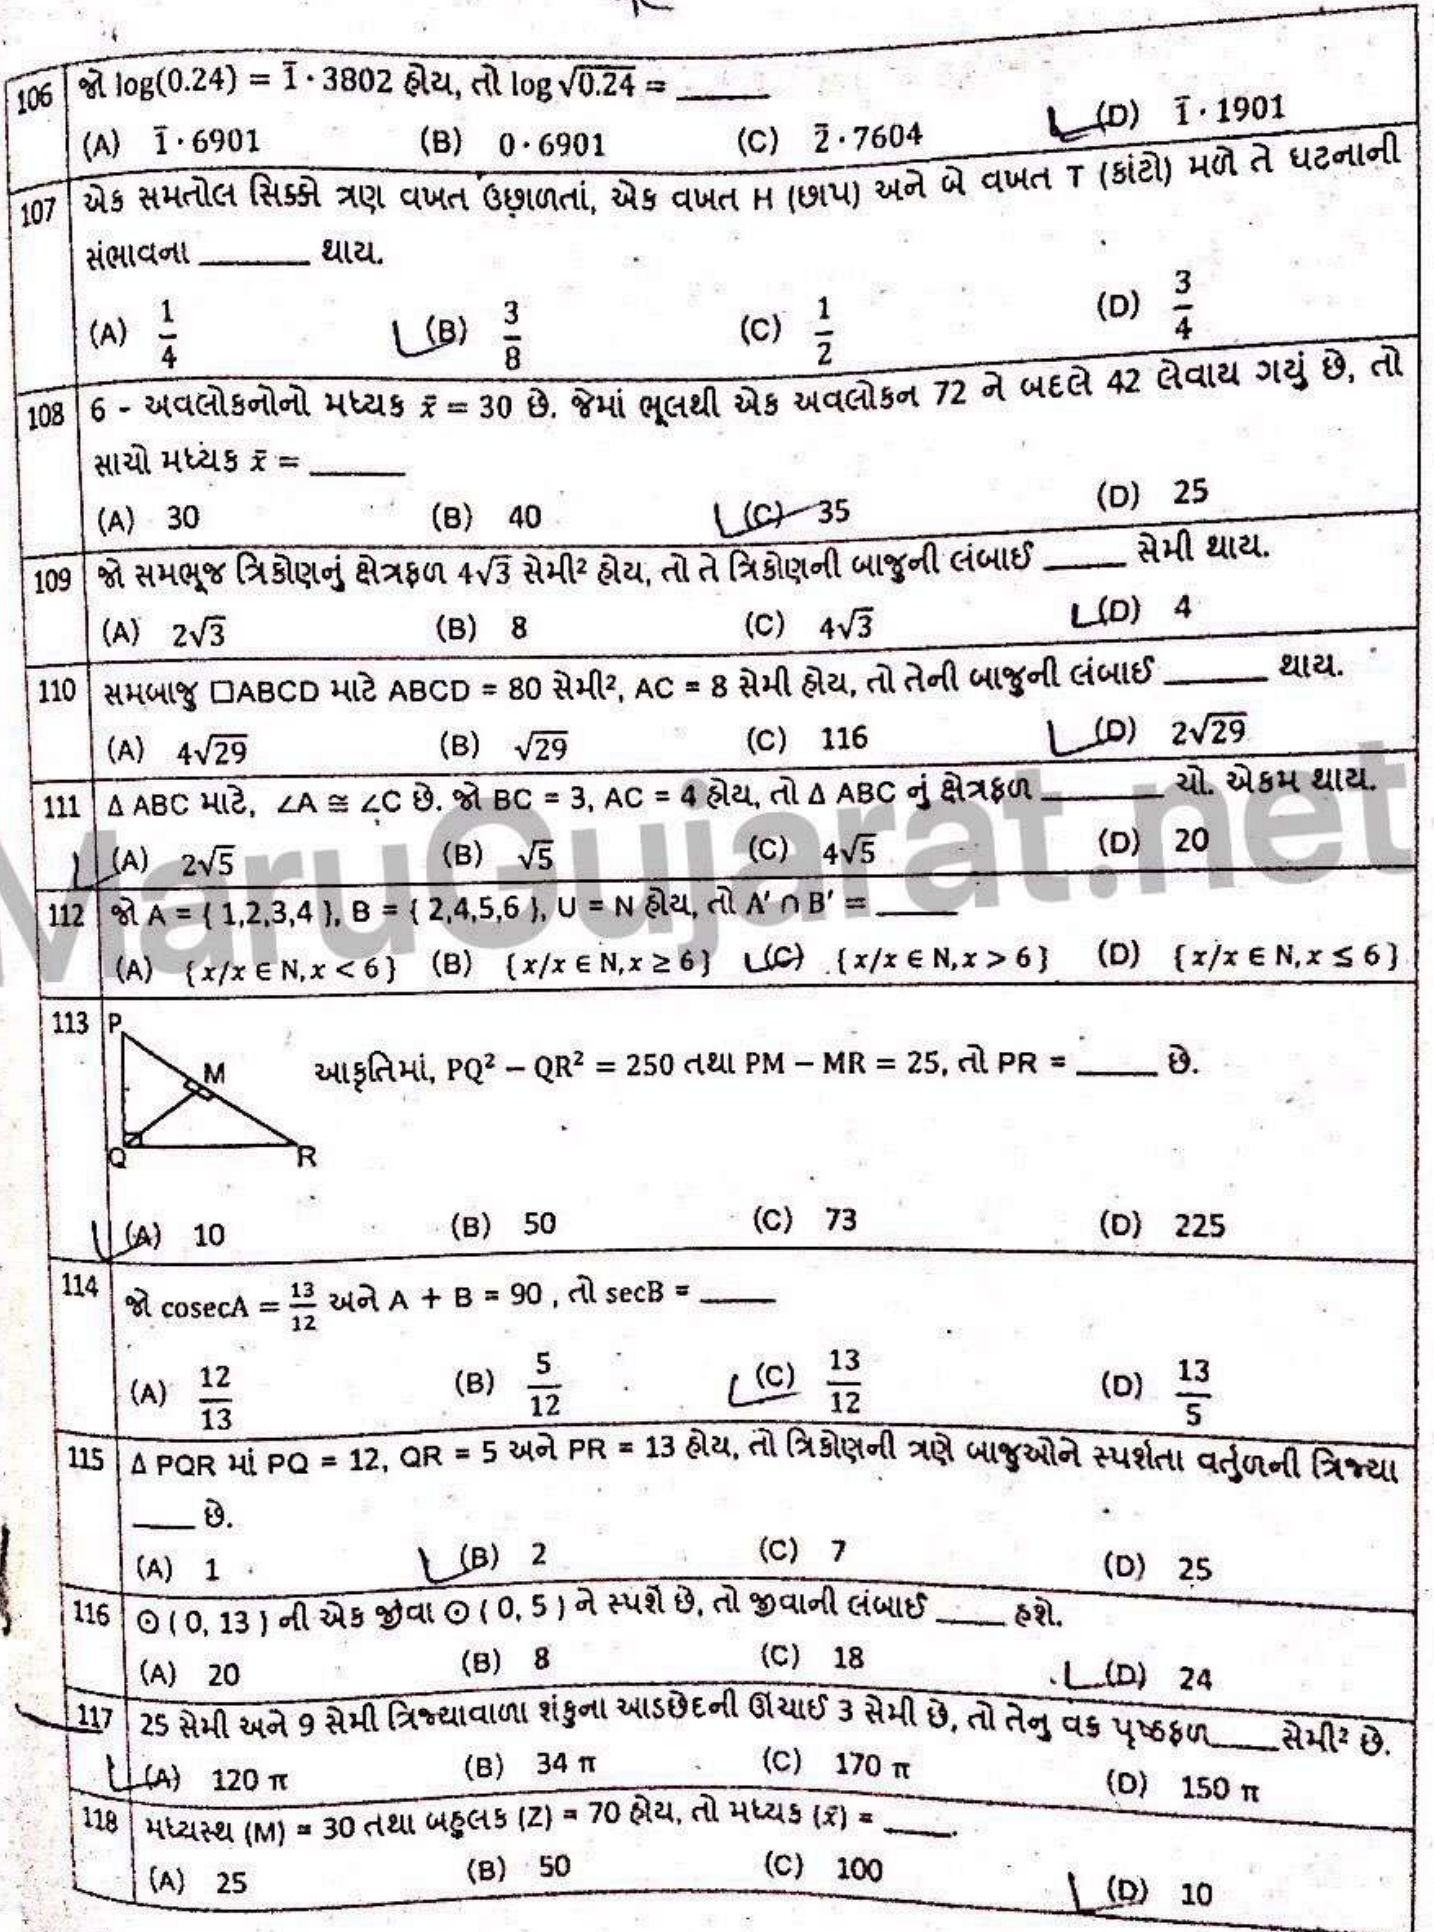 106 જો log(0.24) = 1̄·3802 હોય, તો log √0.24 = ______
(A) 1̄·6901 (B) 0·6901 (C) 2̄·7604 (D) 1̄·1901
107 એક સમતોલ સિક્કો ત્રણ વખત ઉછાળતાં, એક વખત H (છાપ) અને બે વખત T (કાંટો) મળે તે ઘટનાની
સંભાવના ______ થાય.
(A) 1/4 (B) 3/8 (C) 1/2 (D) 3/4
108 6 - અવલોકનોનો મધ્યક x̄ = 30 છે. જેમાં ભૂલથી એક અવલોકન 72 ને બદલે 42 લેવાય ગયું છે, તો
સાચો મધ્યક x̄ = ______
(A) 30 (B) 40 (C) 35 (D) 25
109 જો સમભૂજ ત્રિકોણનું ક્ષેત્રફળ 4√3 સેમી² હોય, તો તે ત્રિકોણની બાજુની લંબાઈ _____ સેમી થાય.
(A) 2√3 (B) 8 (C) 4√3 (D) 4
110 સમબાજુ □ABCD માટે ABCD = 80 સેમી², AC = 8 સેમી હોય, તો તેની બાજુની લંબાઈ ______ થાય.
(A) 4√29 (B) √29 (C) 116 (D) 2√29
111 Δ ABC માટે, ∠A ≅ ∠C છે. જો BC = 3, AC = 4 હોય, તો Δ ABC નું ક્ષેત્રફળ ______ ચો. એકમ થાય.
(A) 2√5 (B) √5 (C) 4√5 (D) 20
MaruGujarat.net
112 જો A = { 1,2,3,4 }, B = { 2,4,5,6 }, U = N હોય, તો A′ ∩ B′ = _____
(A) {x/x ∈ N, x < 6} (B) {x/x ∈ N, x ≥ 6} (C) {x/x ∈ N, x > 6} (D) {x/x ∈ N, x ≤ 6}
113 P
M
આકૃતિમાં, PQ² − QR² = 250 તથા PM − MR = 25, તો PR = _____ છે.
Q R
(A) 10 (B) 50 (C) 73 (D) 225
114 જો cosecA = 13/12 અને A + B = 90 , તો secB = _____
(A) 12/13 (B) 5/12 (C) 13/12 (D) 13/5
115 Δ PQR માં PQ = 12, QR = 5 અને PR = 13 હોય, તો ત્રિકોણની ત્રણે બાજુઓને સ્પર્શતા વર્તુળની ત્રિજ્યા
____ છે.
(A) 1 (B) 2 (C) 7 (D) 25
116 ⊙ ( 0, 13 ) ની એક જીવા ⊙ ( 0, 5 ) ને સ્પર્શે છે, તો જીવાની લંબાઈ ____ હશે.
(A) 20 (B) 8 (C) 18 (D) 24
117 25 સેમી અને 9 સેમી ત્રિજ્યાવાળા શંકુના આડછેદની ઊંચાઈ 3 સેમી છે, તો તેનુ વક્ર પૃષ્ઠફળ____ સેમી² છે.
(A) 120 π (B) 34 π (C) 170 π (D) 150 π
118 મધ્યસ્થ (M) = 30 તથા બહુલક (Z) = 70 હોય, તો મધ્યક (x̄) = ____.
(A) 25 (B) 50 (C) 100 (D) 10